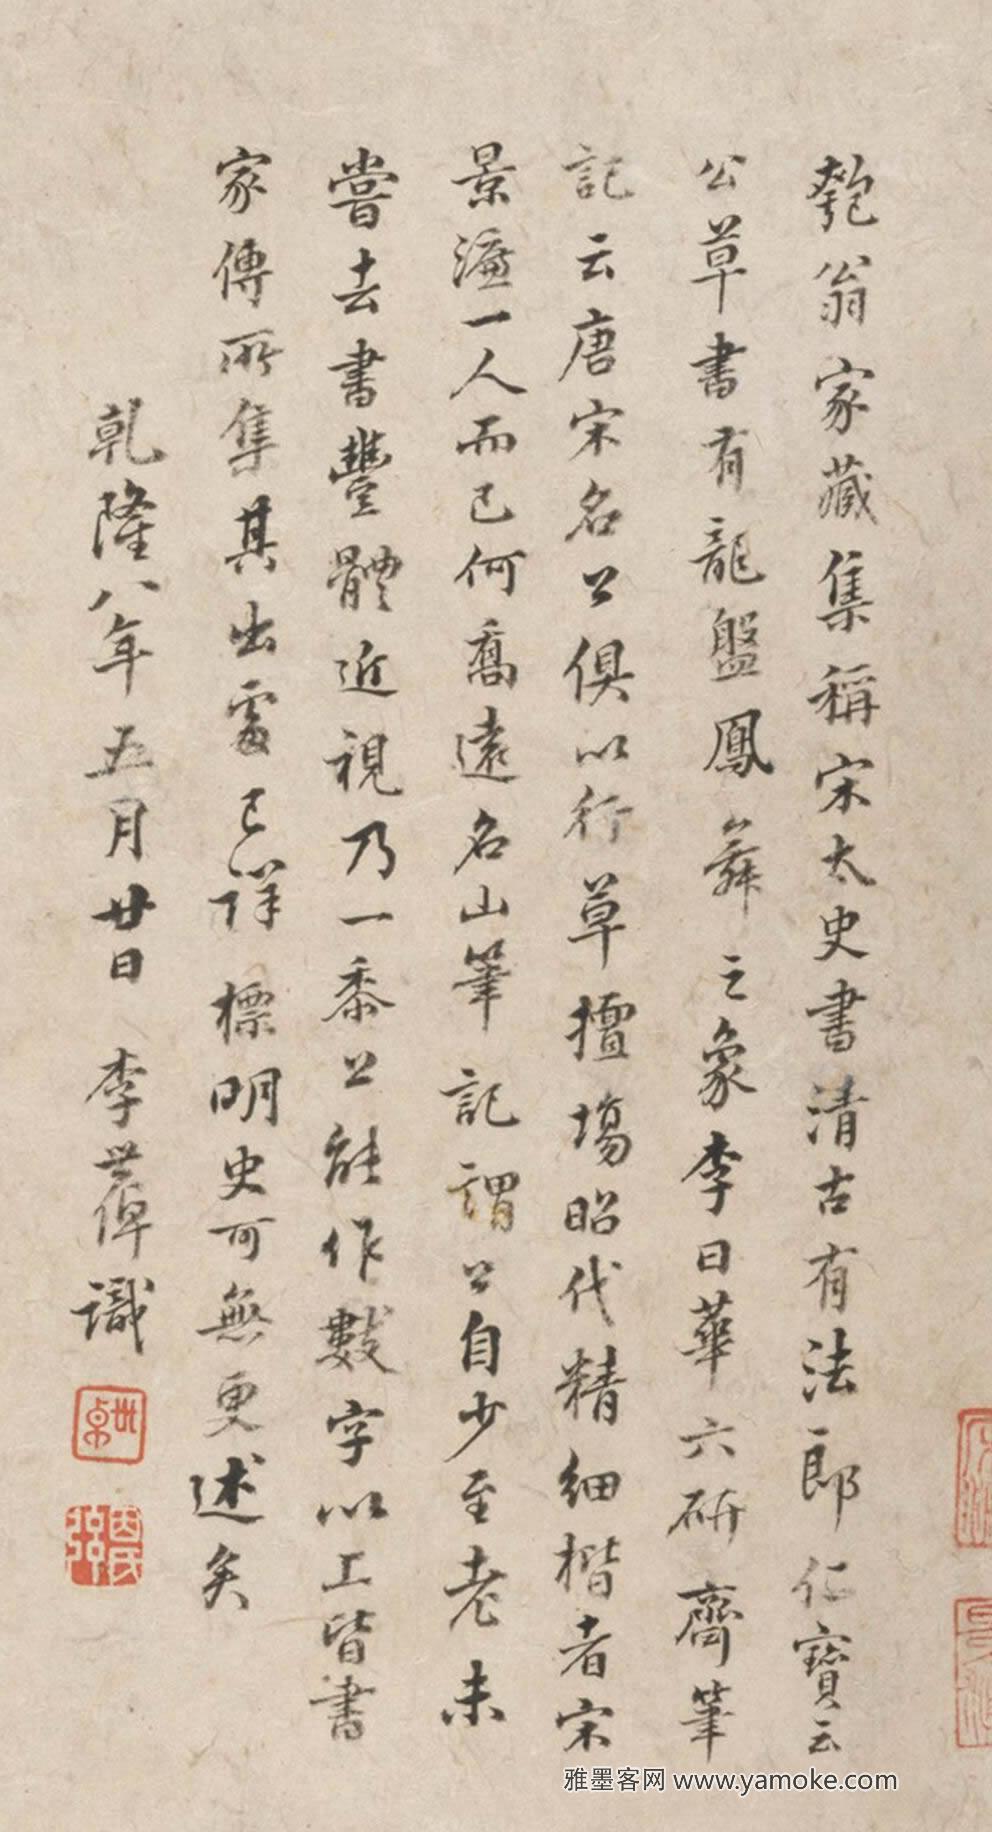 匏翁家藏集稱宋太史書清古有法郎仁寶云
公草書有龍盤鳳舞之象李日華六研齋筆
記云唐宋名公俱以行草擅塲昭代精細楷者宋
景濂一人而已何喬遠名山筆記謂公自少至老未
嘗去書豐體近視乃一黍上能作數字以工皆書
家傳所集其出處已詳標明史可無更述矣
乾隆八年五月廿日 李世倬識
雅墨客网 www.yamoke.com